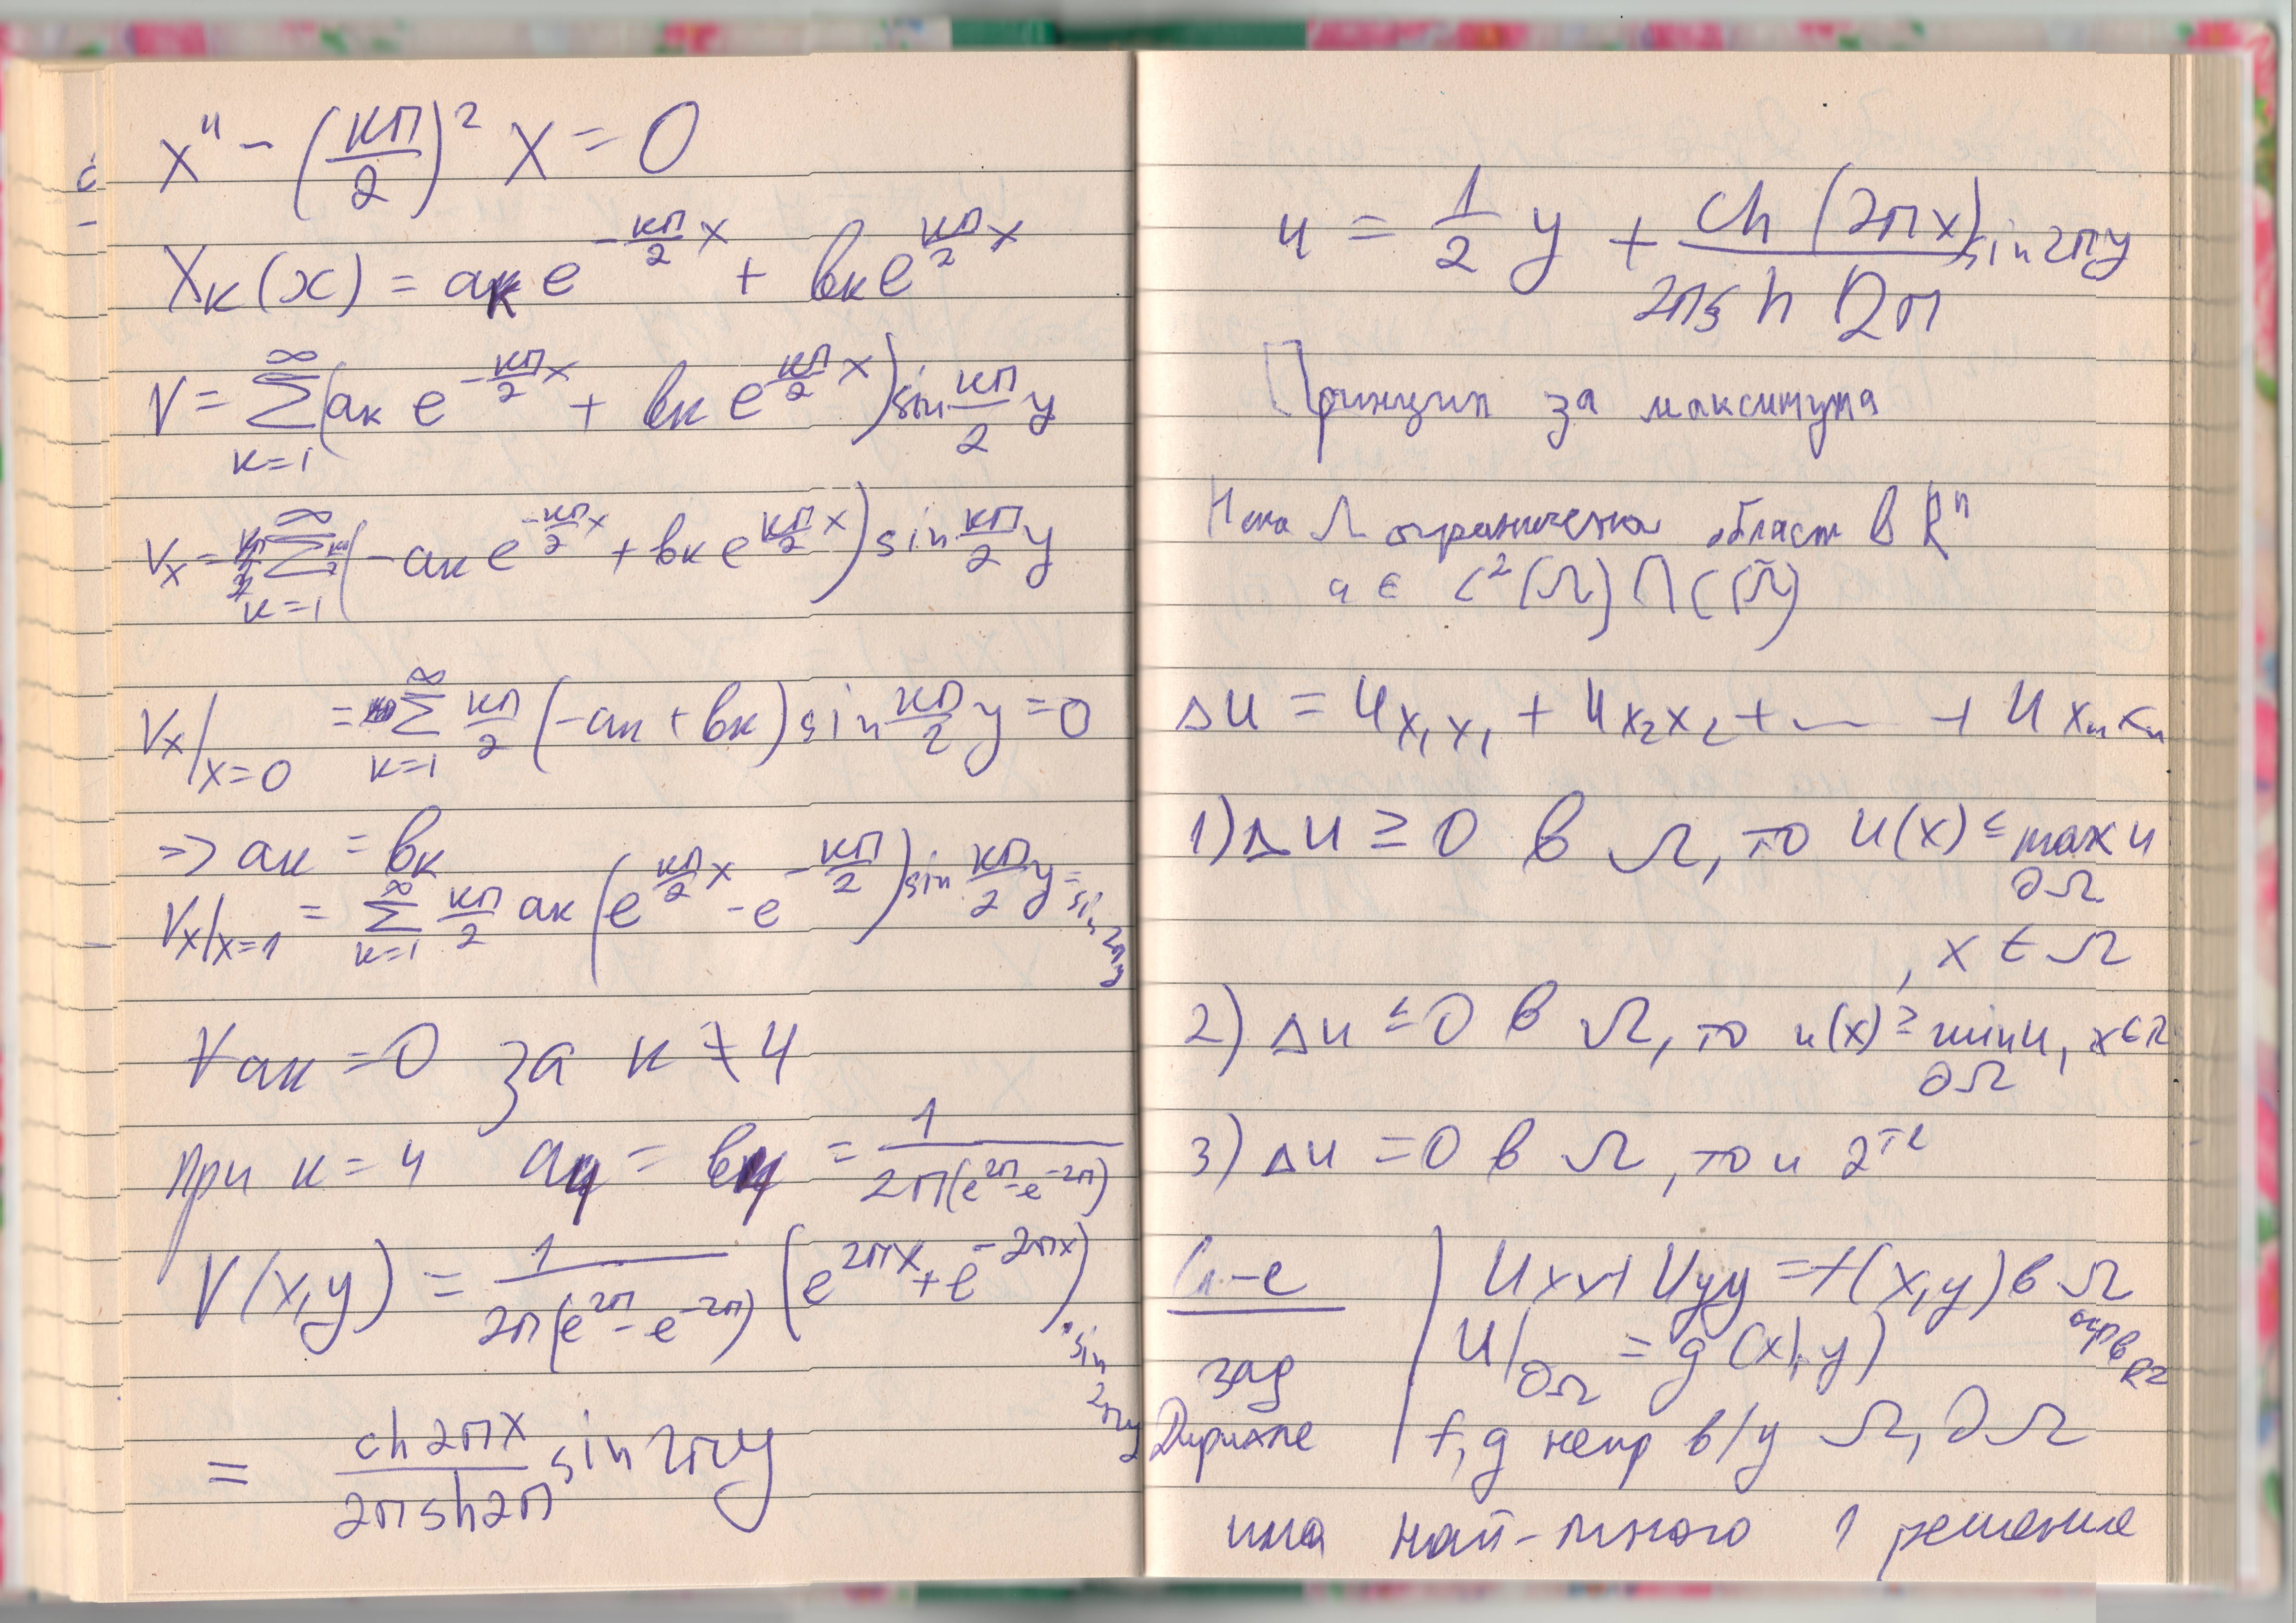 x'' - (кπ/2)² X = 0
Xк(x) = aк e^(-кπ/2 x) + bк e^(кπ/2 x)
V = ∑_{к=1}^∞ (aк e^(-кπ/2 x) + bк e^(кπ/2 x)) sin кπ/2 y
Vx = ∑_{к=1}^∞ (-aк e^(-кπ/2 x) + bк e^(кπ/2 x)) sin кπ/2 y
Vx|x=0 = ∑_{к=1}^∞ кπ/2 (-aк + bк) sin кπ/2 y = 0
=> aк = bк
Vx|x=1 = ∑_{к=1}^∞ кπ/2 aк (e^(кπ/2 x) - e^(-кπ/2)) sin кπ/2 y = sin 2πy
∀ aк = 0 за к ≠ 4
При к = 4 a4 = b4 = 1/(2π(e^(2π) - e^(-2π)))
V(x,y) = 1/(2π(e^(2π) - e^(-2π))) (e^(2πx) + e^(-2πx)) . sin 2πy
= ch2πx/(2πsh2π) sin 2πy
u = 1/2 y + ch(2πx)/(2πsh2π) sin2πy
Принцип за максимума
Нека Ω ограничена област в R^n
u ∈ C²(Ω) ∩ C(Ω̄)
Δu = u x₁x₁ + u x₂x₂ + ... + u xₙxₙ
1) Δu ≥ 0 в Ω, то u(x) ≤ max u ∂Ω
, x ∈ Ω
2) Δu ≤ 0 в Ω, то u(x) ≥ min u ∂Ω, x ∈ Ω
3) Δu = 0 в Ω, то и 2^те
Сл-е | Uxx + Uyy = f(x,y) в Ω огр в R2
зад | U|∂Ω = g(x,y)
Дирихле | f, g непр в/у Ω, ∂Ω
има най-много 1 решение